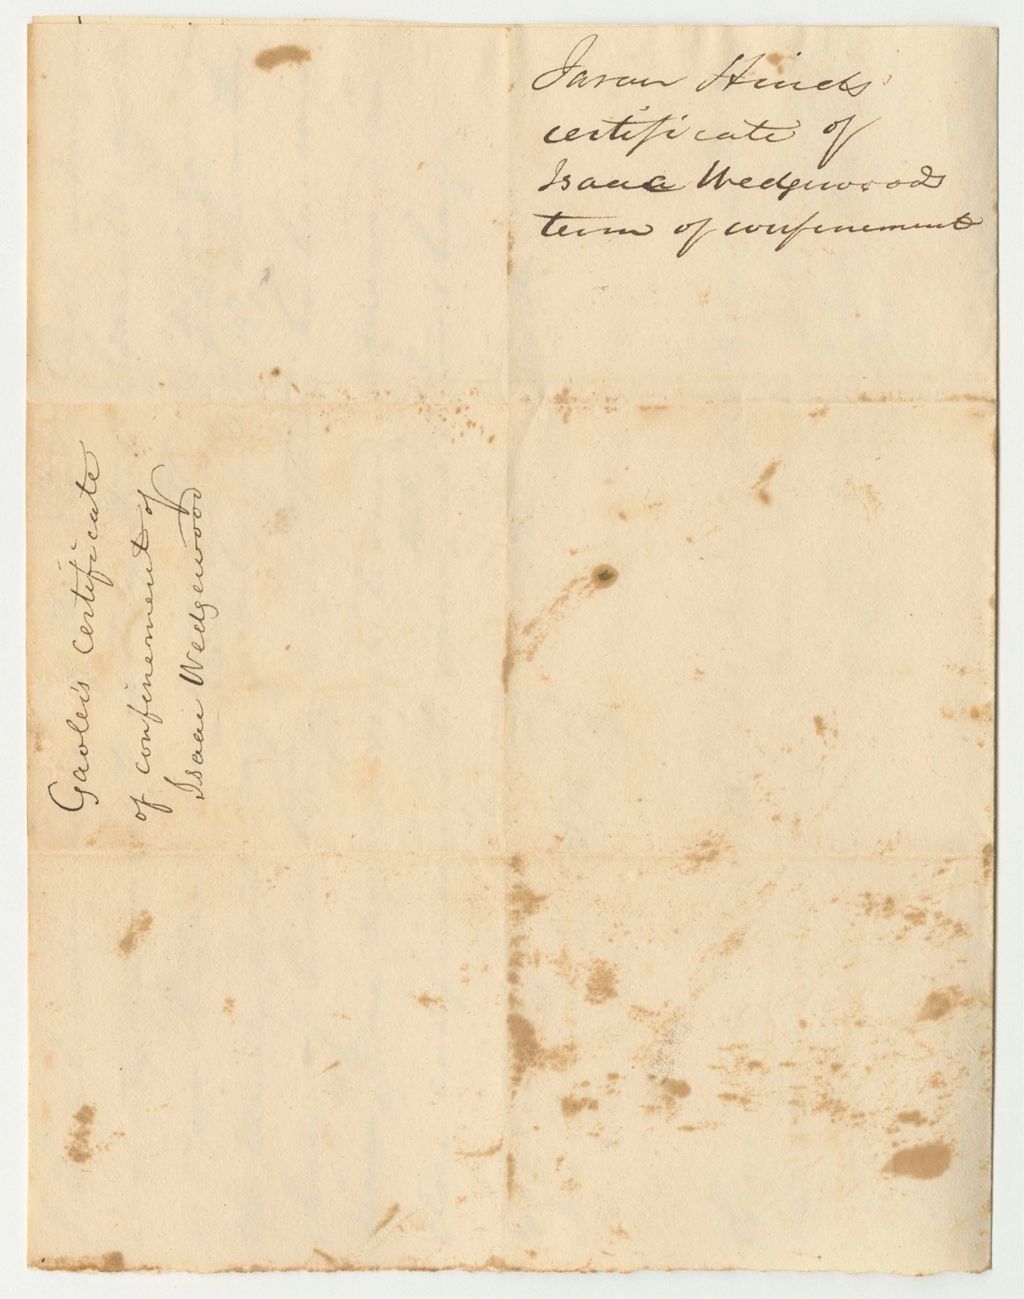 Hinds'
certificate of
Isaac Wedgewoods
term of confinement
Gaoler's certificate
of confinement of
Isaac Wedgewood